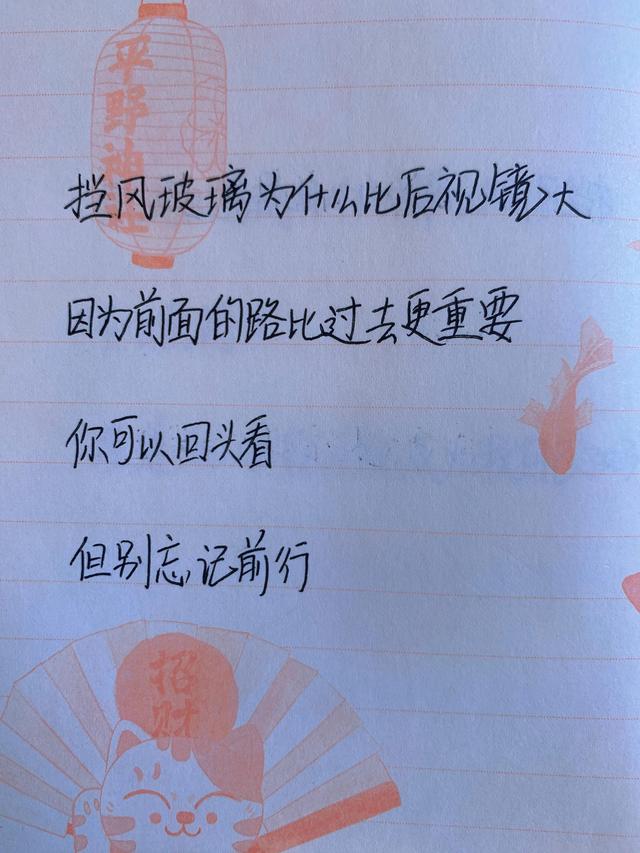 平野神社
挡风玻璃为什么比后视镜大
因为前面的路比过去更重要
你可以回头看
但别忘记前行
招财